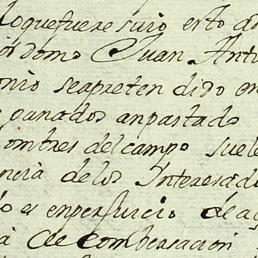 loquefuere suio esto do
domo Juan Anto
onio seapreten dido en
ganados anpastado
ombres del campo suele
encia de los Interesado
do a enperjuicio de a
a de combersacion